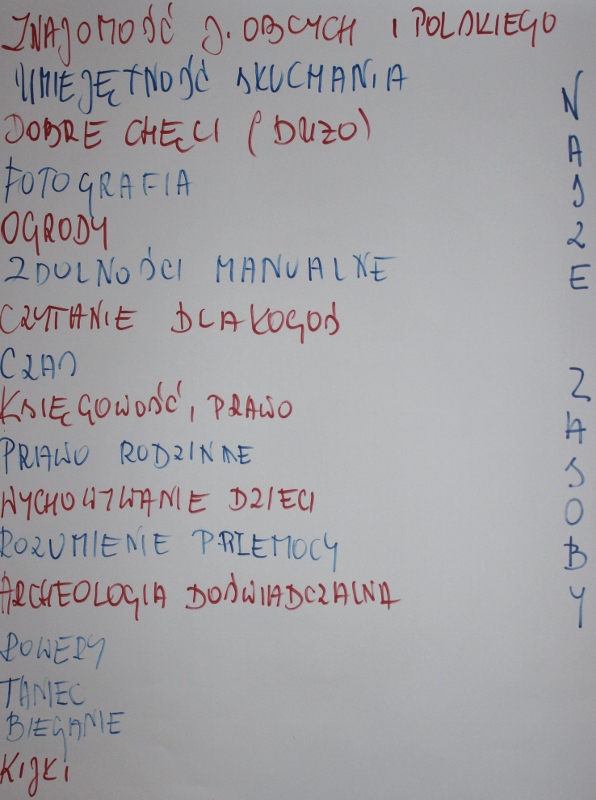 ZNAJOMOŚĆ J. OBCYCH I POLSKIEGO
UMIEJĘTNOŚĆ SŁUCHANIA
DOBRE CHĘCI (DUŻO)
FOTOGRAFIA
OGRODY
ZDOLNOŚCI MANUALNE
CZYTANIE DLA KOGOŚ
CZAS
KSIĘGOWOŚĆ, PRAWO
PRAWO RODZINNE
WYCHOWYWANIE DZIECI
ROZUMIENIE PRZEMOCY
ARCHEOLOGIA DOŚWIADCZALNA
ROWERY
TANIEC
BIEGANIE
KIJKI
NASZE ZASOBY